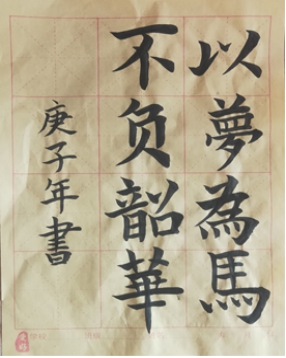 以夢為馬
不负韶華
庚子年書